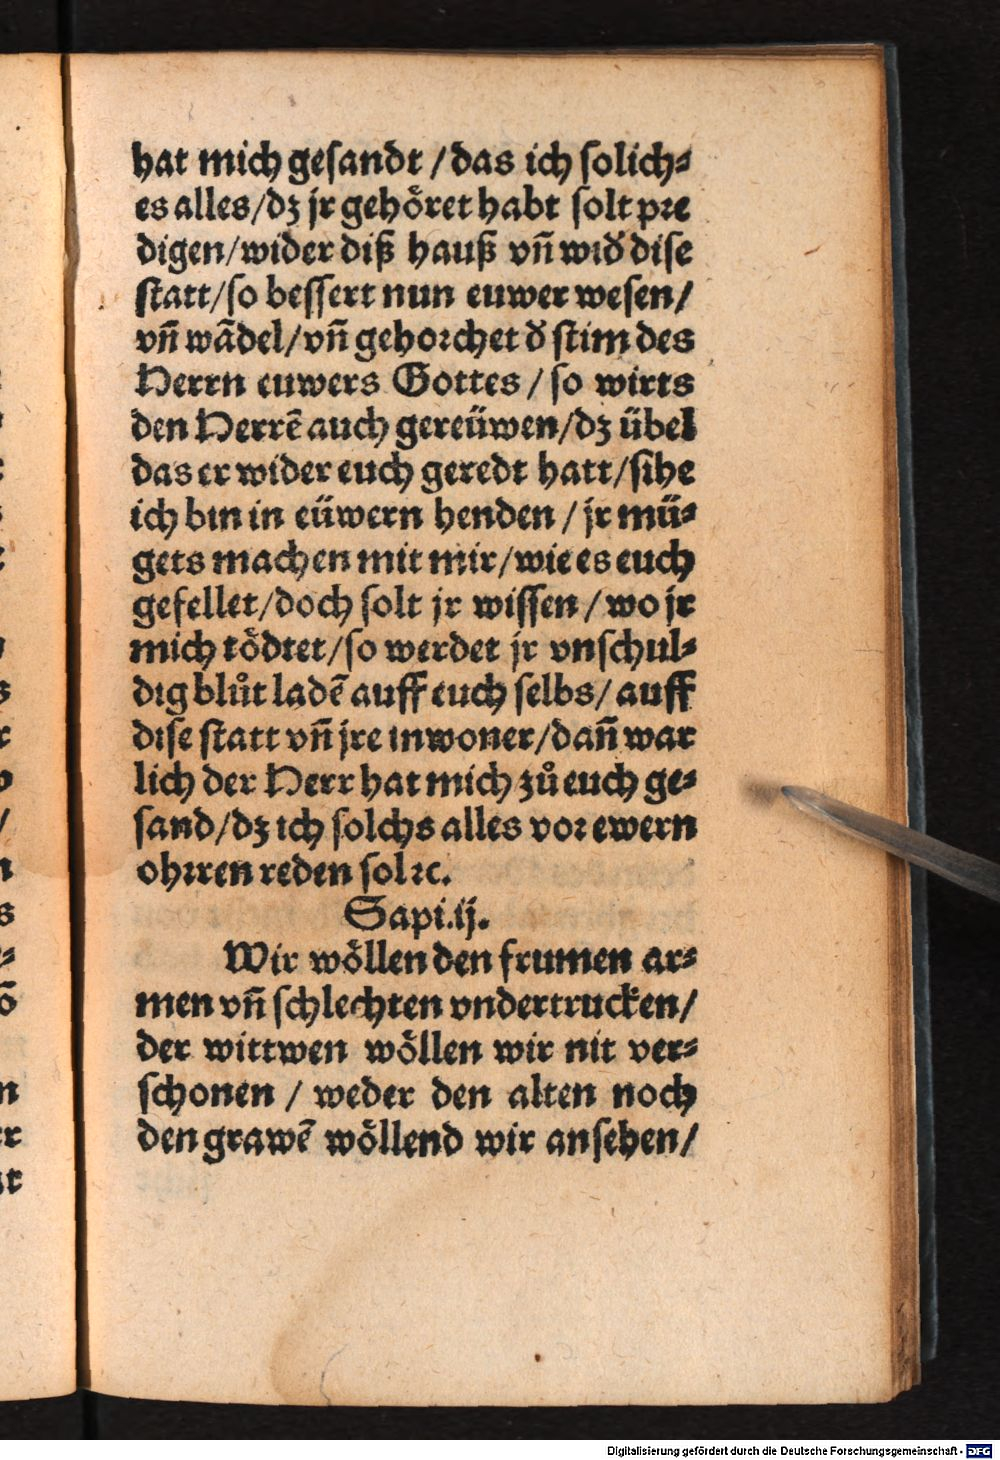 hat mich gesandt / das ich solich⸗
es alles/dz jr gehöret habt solt pꝛe
digen/wider diß hauß vn̄ wid̓ dise
statt/so bessert nun euwer wesen/
vn̄ wādel/vn̄ gehoꝛchet d̓ stim des
Herrn euwers Gottes / so wirts
den Herrē auch gereüwen/dz übel
das er wider euch geredt hatt/sihe
ich bin in eüwern henden / jr mü⸗
gets machen mit mir/wie es euch
gefellet/doch solt jr wissen / wo jr
mich tödtet/so werdet jr vnschul⸗
dig blůt ladē auff euch selbs/ auff
dise statt vn̄ jre inwoner/dañ war
lich der Herr hat mich zů euch ge⸗
sand/dz ich solchs alles voꝛ ewern
ohꝛren reden sol ꝛc.
Sapi.ij.
Wir wöllen den frumen ar⸗
men vn̄ schlechten vndertrucken/
der wittwen wöllen wir nit ver⸗
schonen / weder den alten noch
den grawē wöllend wir ansehen/
Digitalisierung gefördert durch die Deutsche Forschungsgemeinschaft - DFG